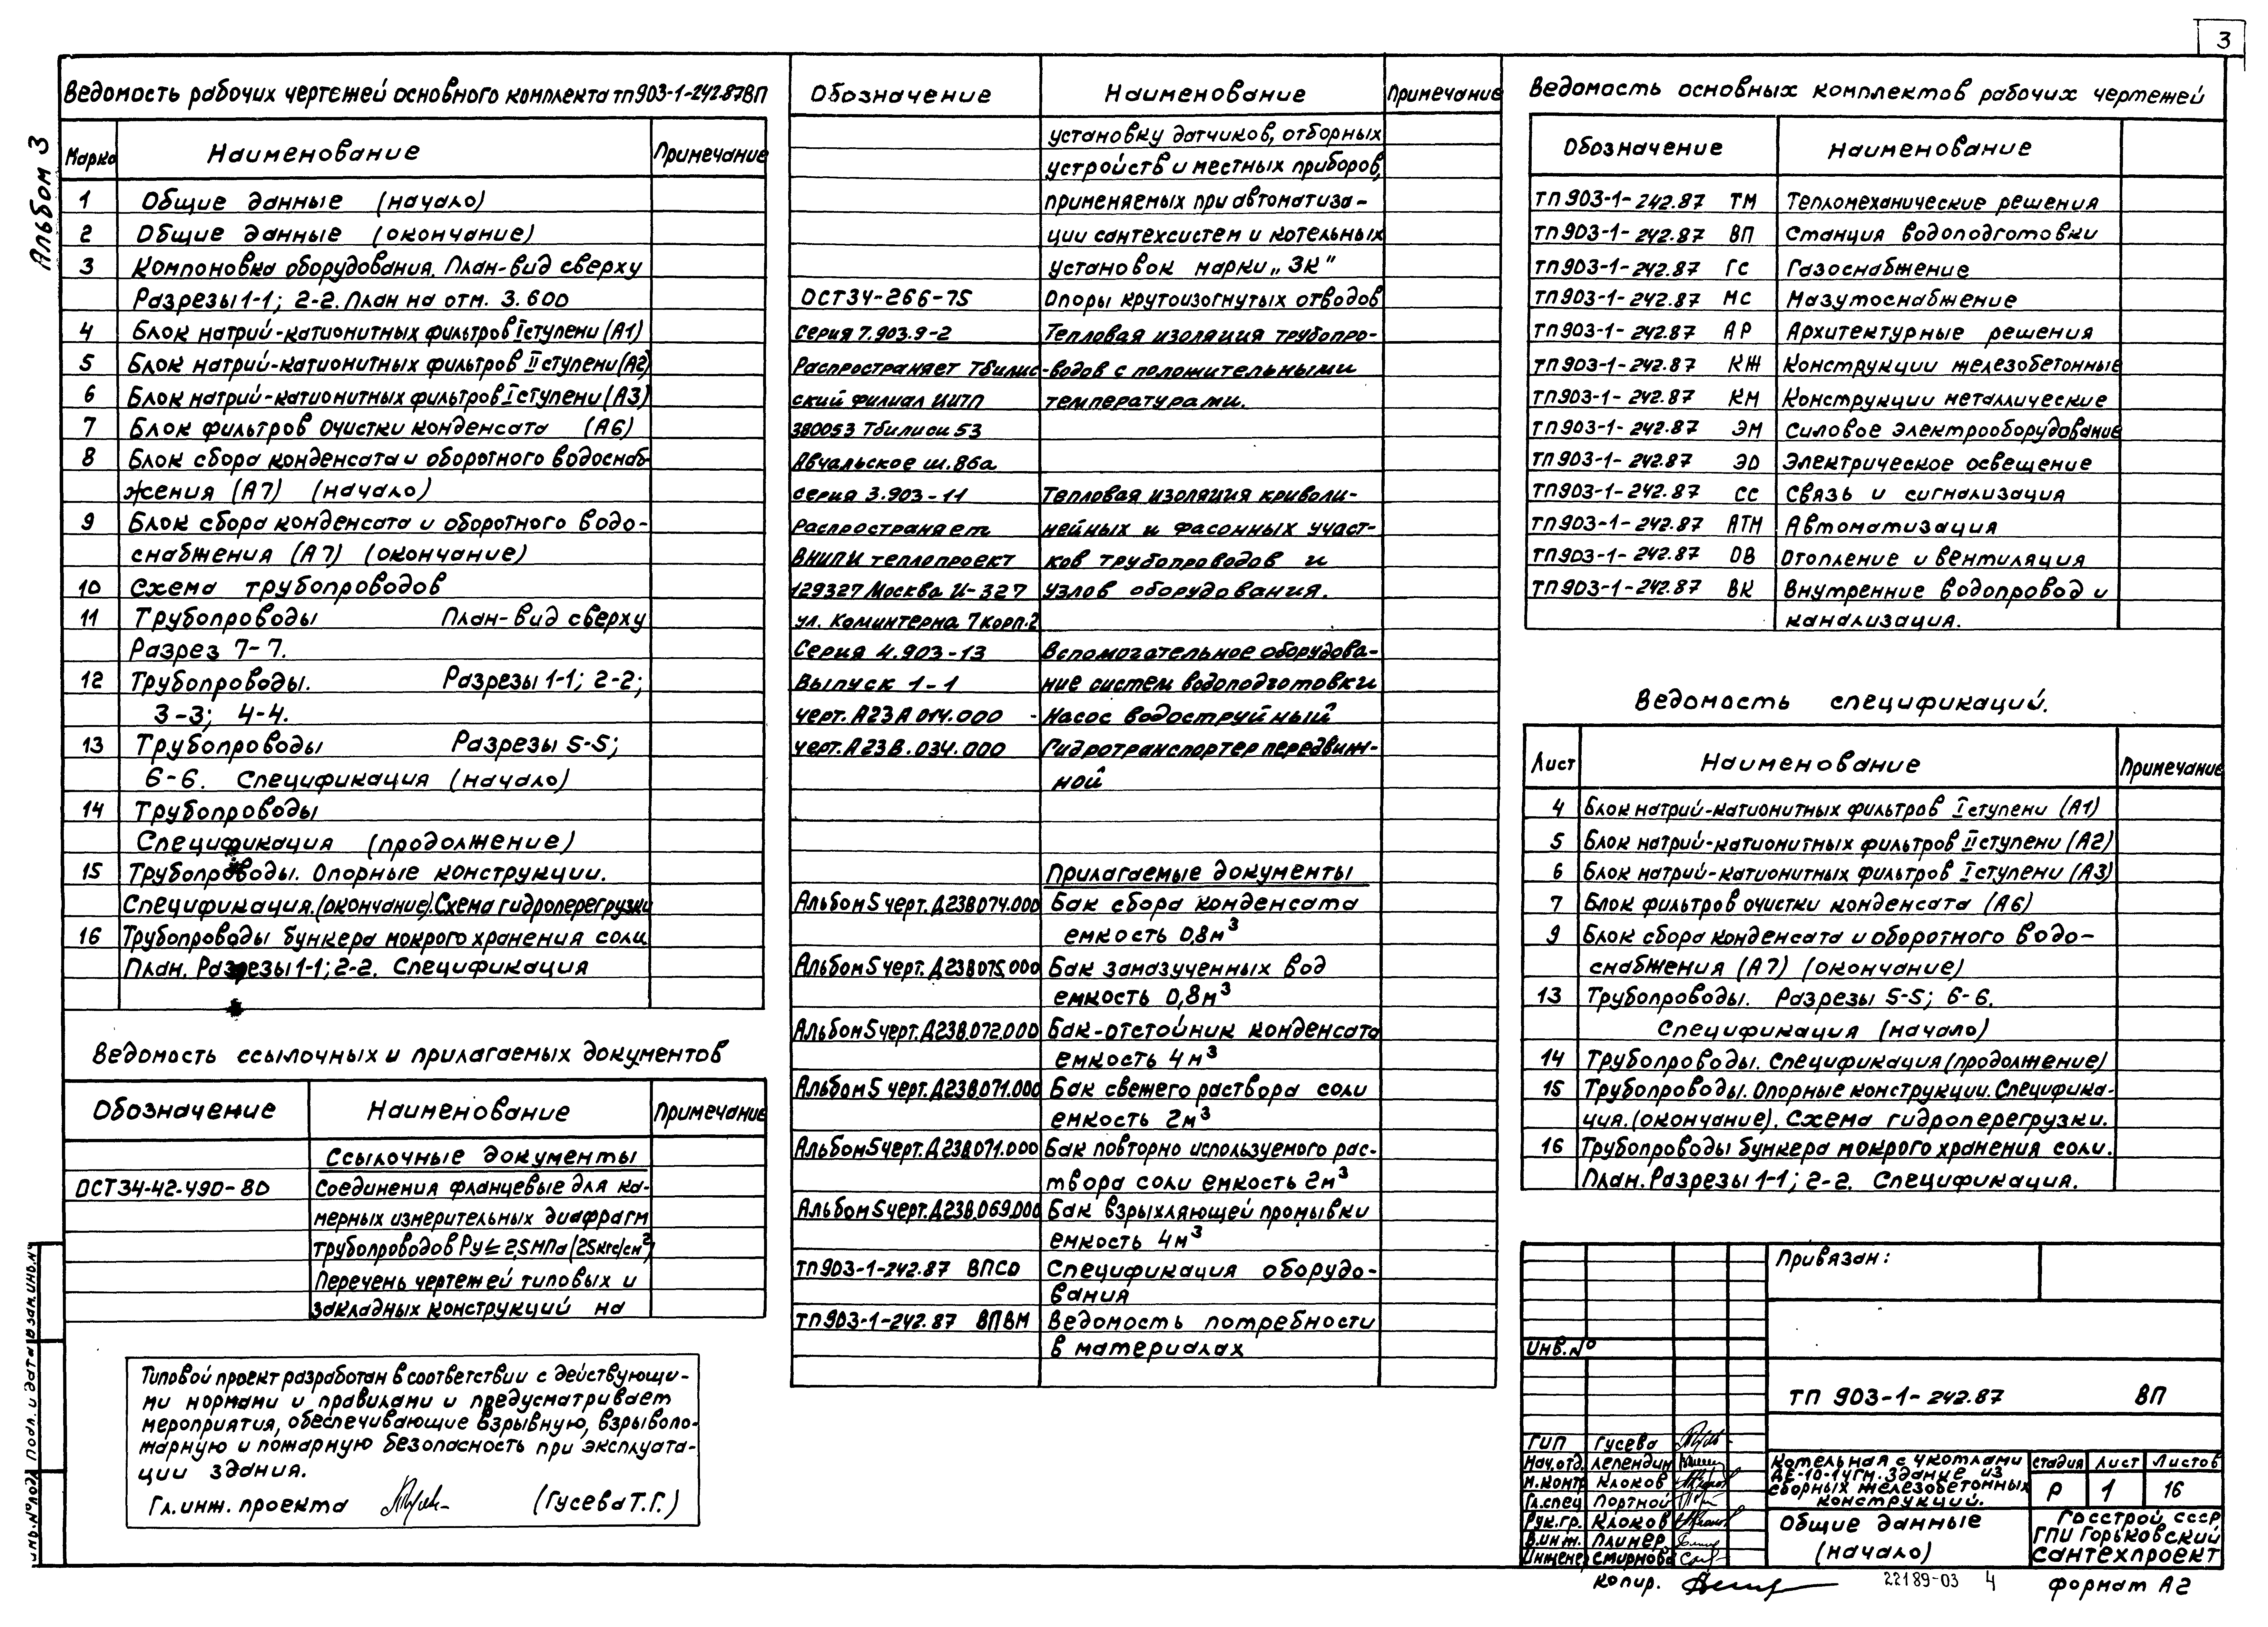 3
Альбом 3
Ведомость рабочих чертежей основного комплекта тп903-1-242.87ВП
Марка Наименование Примечание
1 Общие данные (начало)
2 Общие данные (окончание)
3 Компоновка оборудования. План-вид сверху
Разрезы 1-1; 2-2. План на отм. 3.600
4 Блок натрий-катионитных фильтров I ступени (А1)
5 Блок натрий-катионитных фильтров II ступени (А2)
6 Блок натрий-катионитных фильтров I ступени (А3)
7 Блок фильтров очистки конденсата (А6)
8 Блок сбора конденсата и оборотного водоснаб-
жения (А7) (начало)
9 Блок сбора конденсата и оборотного водо-
снабжения (А7) (окончание)
10 Схема трубопроводов
11 Трубопроводы План-вид сверху
Разрез 7-7.
12 Трубопроводы. Разрезы 1-1; 2-2;
3-3; 4-4.
13 Трубопроводы Разрезы 5-5;
6-6. Спецификация (начало)
14 Трубопроводы
Спецификация (продолжение)
15 Трубопроводы. Опорные конструкции.
Спецификация.(окончание).Схема гидроперегрузки
16 Трубопроводы бункера мокрого хранения соли
План. Разрезы 1-1; 2-2. Спецификация
Ведомость ссылочных и прилагаемых документов
Обозначение Наименование Примечание
Ссылочные документы
ОСТ34-42-490-80 Соединения фланцевые для ка-
мерных измерительных диафрагм
трубопроводов Ру≤2,5МПа(25кгс/см²)
Перечень чертежей типовых и
закладных конструкций на
Типовой проект разработан в соответствии с действующи-
ми нормами и правилами и предусматривает
мероприятия, обеспечивающие взрывную, взрывопо-
жарную и пожарную безопасность при эксплуата-
ции здания.
Гл. инж. проекта (Гусева Т.Г.)
Обозначение Наименование Примечание
установку датчиков, отборных
устройств и местных приборов,
применяемых при автоматиза-
ции сантехсистем и котельных
установок марки „ЗК"
ОСТ34-266-75 Опоры крутоизогнутых отводов
Серия 7.903.9-2 Тепловая изоляция трубопро-
Распространяет Тбилис- водов с положительными
ский филиал ЦИТП температурами.
380053 Тбилиси 53
Авчальское ш. 86а
Серия 3.903-11 Тепловая изоляция криволи-
Распространяет нейных и фасонных участ-
ВНИПИ теплопроект ков трубопроводов и
129327 Москва И-327 узлов оборудования.
ул. Коминтерна 7 корп.2
Серия 4.903-13 Вспомогательное оборудова-
Выпуск 1-1 ние систем водоподготовки
черт. А23А 014.000 - Насос водоструйный
черт. А23В.034.000 Гидротранспортер передвиж-
ной
Прилагаемые документы
Альбом 5 черт. Д23В074.000 Бак сбора конденсата
емкость 0,8м³
Альбом 5 черт. Д23В075.000 Бак замазученных вод
емкость 0,8м³
Альбом 5 черт. Д23В.072.000 Бак-отстойник конденсата
емкость 4м³
Альбом 5 черт. Д23В.071.000 Бак свежего раствора соли
емкость 2м³
Альбом 5 черт. Д23В.071.000 Бак повторно используемого рас-
твора соли емкость 2м³
Альбом 5 черт. Д23В.069.000 Бак взрыхляющей промывки
емкость 4м³
тп903-1-242.87 ВПСО Спецификация оборудо-
вания
тп903-1-242.87 ВПВМ Ведомость потребности
в материалах
Ведомость основных комплектов рабочих чертежей
Обозначение Наименование
тп903-1-242.87 ТМ Тепломеханические решения
тп903-1-242.87 ВП Станция водоподготовки
тп903-1-242.87 ГС Газоснабжение
тп903-1-242.87 МС Мазутоснабжение
тп903-1-242.87 АР Архитектурные решения
тп903-1-242.87 КЖ Конструкции железобетонные
тп903-1-242.87 КМ Конструкции металлические
тп903-1-242.87 ЭМ Силовое электрооборудование
тп903-1-242.87 ЭО Электрическое освещение
тп903-1-242.87 СС Связь и сигнализация
тп903-1-242.87 АТМ Автоматизация
тп903-1-242.87 ОВ Отопление и вентиляция
тп903-1-242.87 ВК Внутренние водопровод и
канализация.
Ведомость спецификаций.
Лист Наименование Примечание
4 Блок натрий-катионитных фильтров I ступени (А1)
5 Блок натрий-катионитных фильтров II ступени (А2)
6 Блок натрий-катионитных фильтров I ступени (А3)
7 Блок фильтров очистки конденсата (А6)
9 Блок сбора конденсата и оборотного водо-
снабжения (А7) (окончание)
13 Трубопроводы. Разрезы 5-5; 6-6.
Спецификация (начало)
14 Трубопроводы. Спецификация (продолжение)
15 Трубопроводы. Опорные конструкции. Специфика-
ция.(окончание). Схема гидроперегрузки.
16 Трубопроводы бункера мокрого хранения соли.
План. Разрезы 1-1; 2-2. Спецификация.
Привязан:
Инв. №
тп 903-1-242.87 ВП
ГИП Гусева
Нач.отд. Лепендин
Н.контр Клоков
Гл.спец Портной
Рук.гр. Клоков
В.инж. Плинер
Инженер Смирнова
Котельная с 4 котлами
ДЕ-10-14ГМ. Здание из
сборных железобетонных
конструкций.
Стадия Лист Листов
Р 1 16
Общие данные
(начало)
Госстрой СССР
ГПИ Горьковский
Сантехпроект
Копир.
22189-03 4
формат А2
Инв.№ подл. Подп. и дата Взам.инв.№